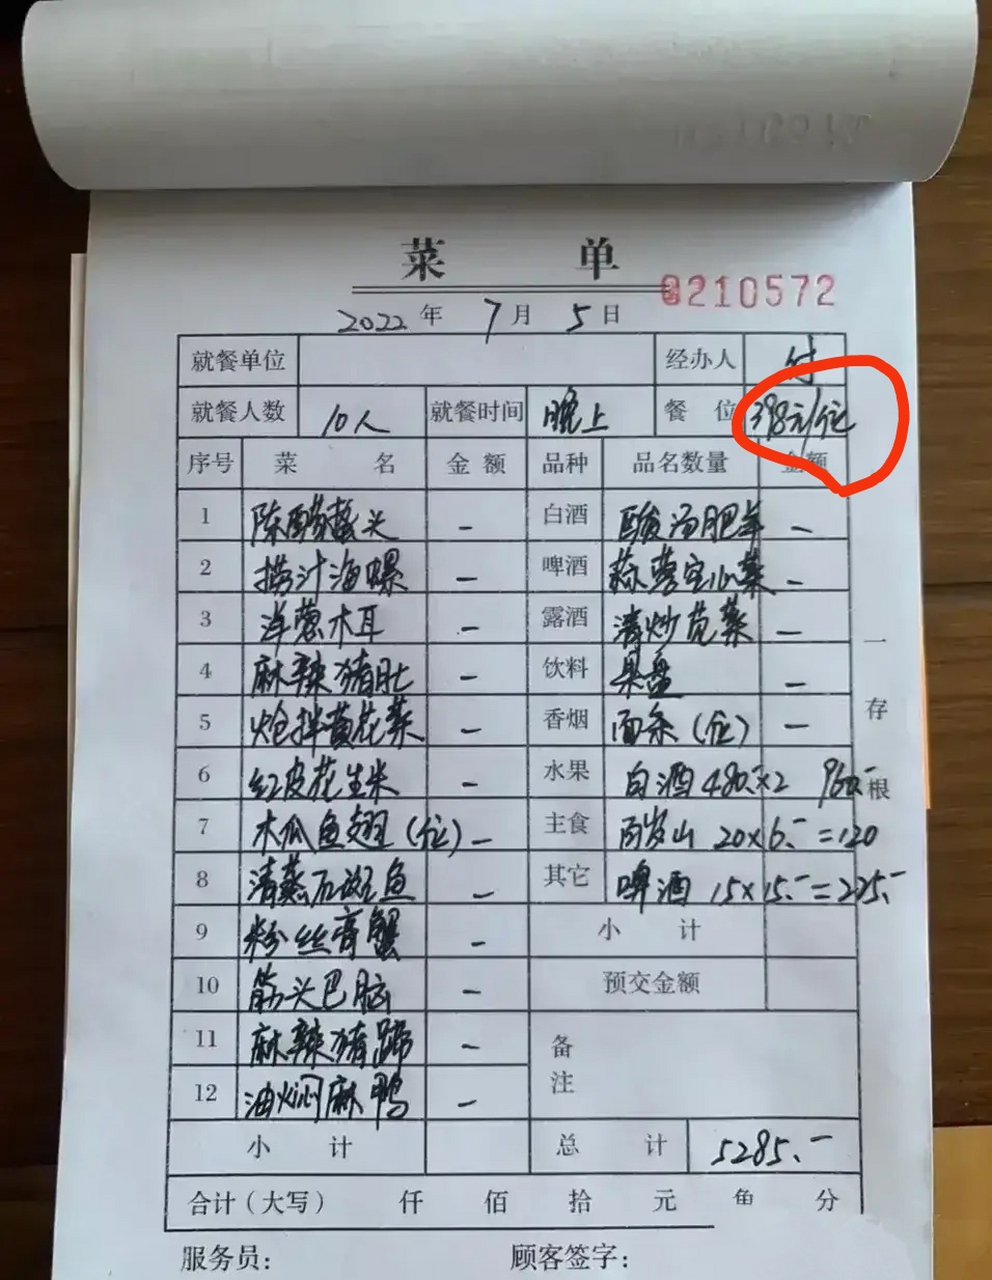 菜 单
0210572
2022年7月5日
就餐单位 经办人 付
就餐人数 10人 就餐时间 晚上 餐位 398元/位
序号 菜名 金额 品种 品名数量 金额
1 陈醋蜇头 - 白酒 酸汤肥羊 -
2 捞汁海螺 - 啤酒 蒜蓉空心菜 -
3 洋葱木耳 - 露酒 清炒苋菜 -
4 麻辣猪肚 - 饮料 果盘 -
5 炝拌黄花菜 - 香烟 面条(位) -
6 红皮花生米 - 水果 白酒 480.-×2 960.-
7 木瓜鱼翅(位) - 主食 百岁山 20×6.-=120
8 清蒸石斑鱼 - 其它 啤酒 15×15.-=225.-
9 粉丝膏蟹 - 小计
10 筋头巴脑 - 预交金额
11 麻辣猪蹄 - 备注
12 油焖麻鸭 -
小计 总计 5285.-
合计(大写) 仟 佰 拾 元 角 分
服务员: 顾客签字:
一存根